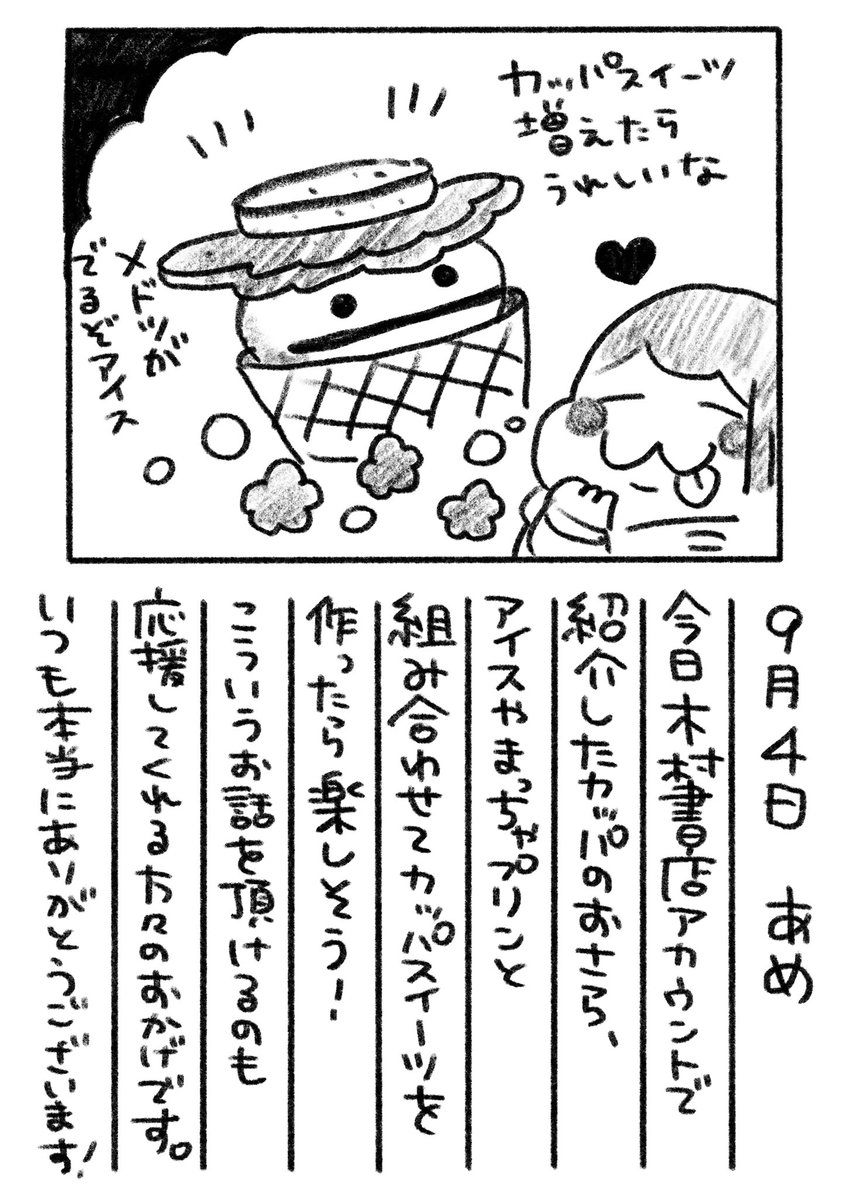 カッパスイーツ
増えたら
うれしいな
メドツが
でるぞアイス
9月4日 あめ
今日木村書店アカウントで
紹介したカッパのおさら、
アイスやまっちゃプリンと
組み合わせてカッパスイーツを
作ったら楽しそう!
こういうお話を頂けるのも
応援してくれる方々のおかげです。
いつも本当にありがとうございます!